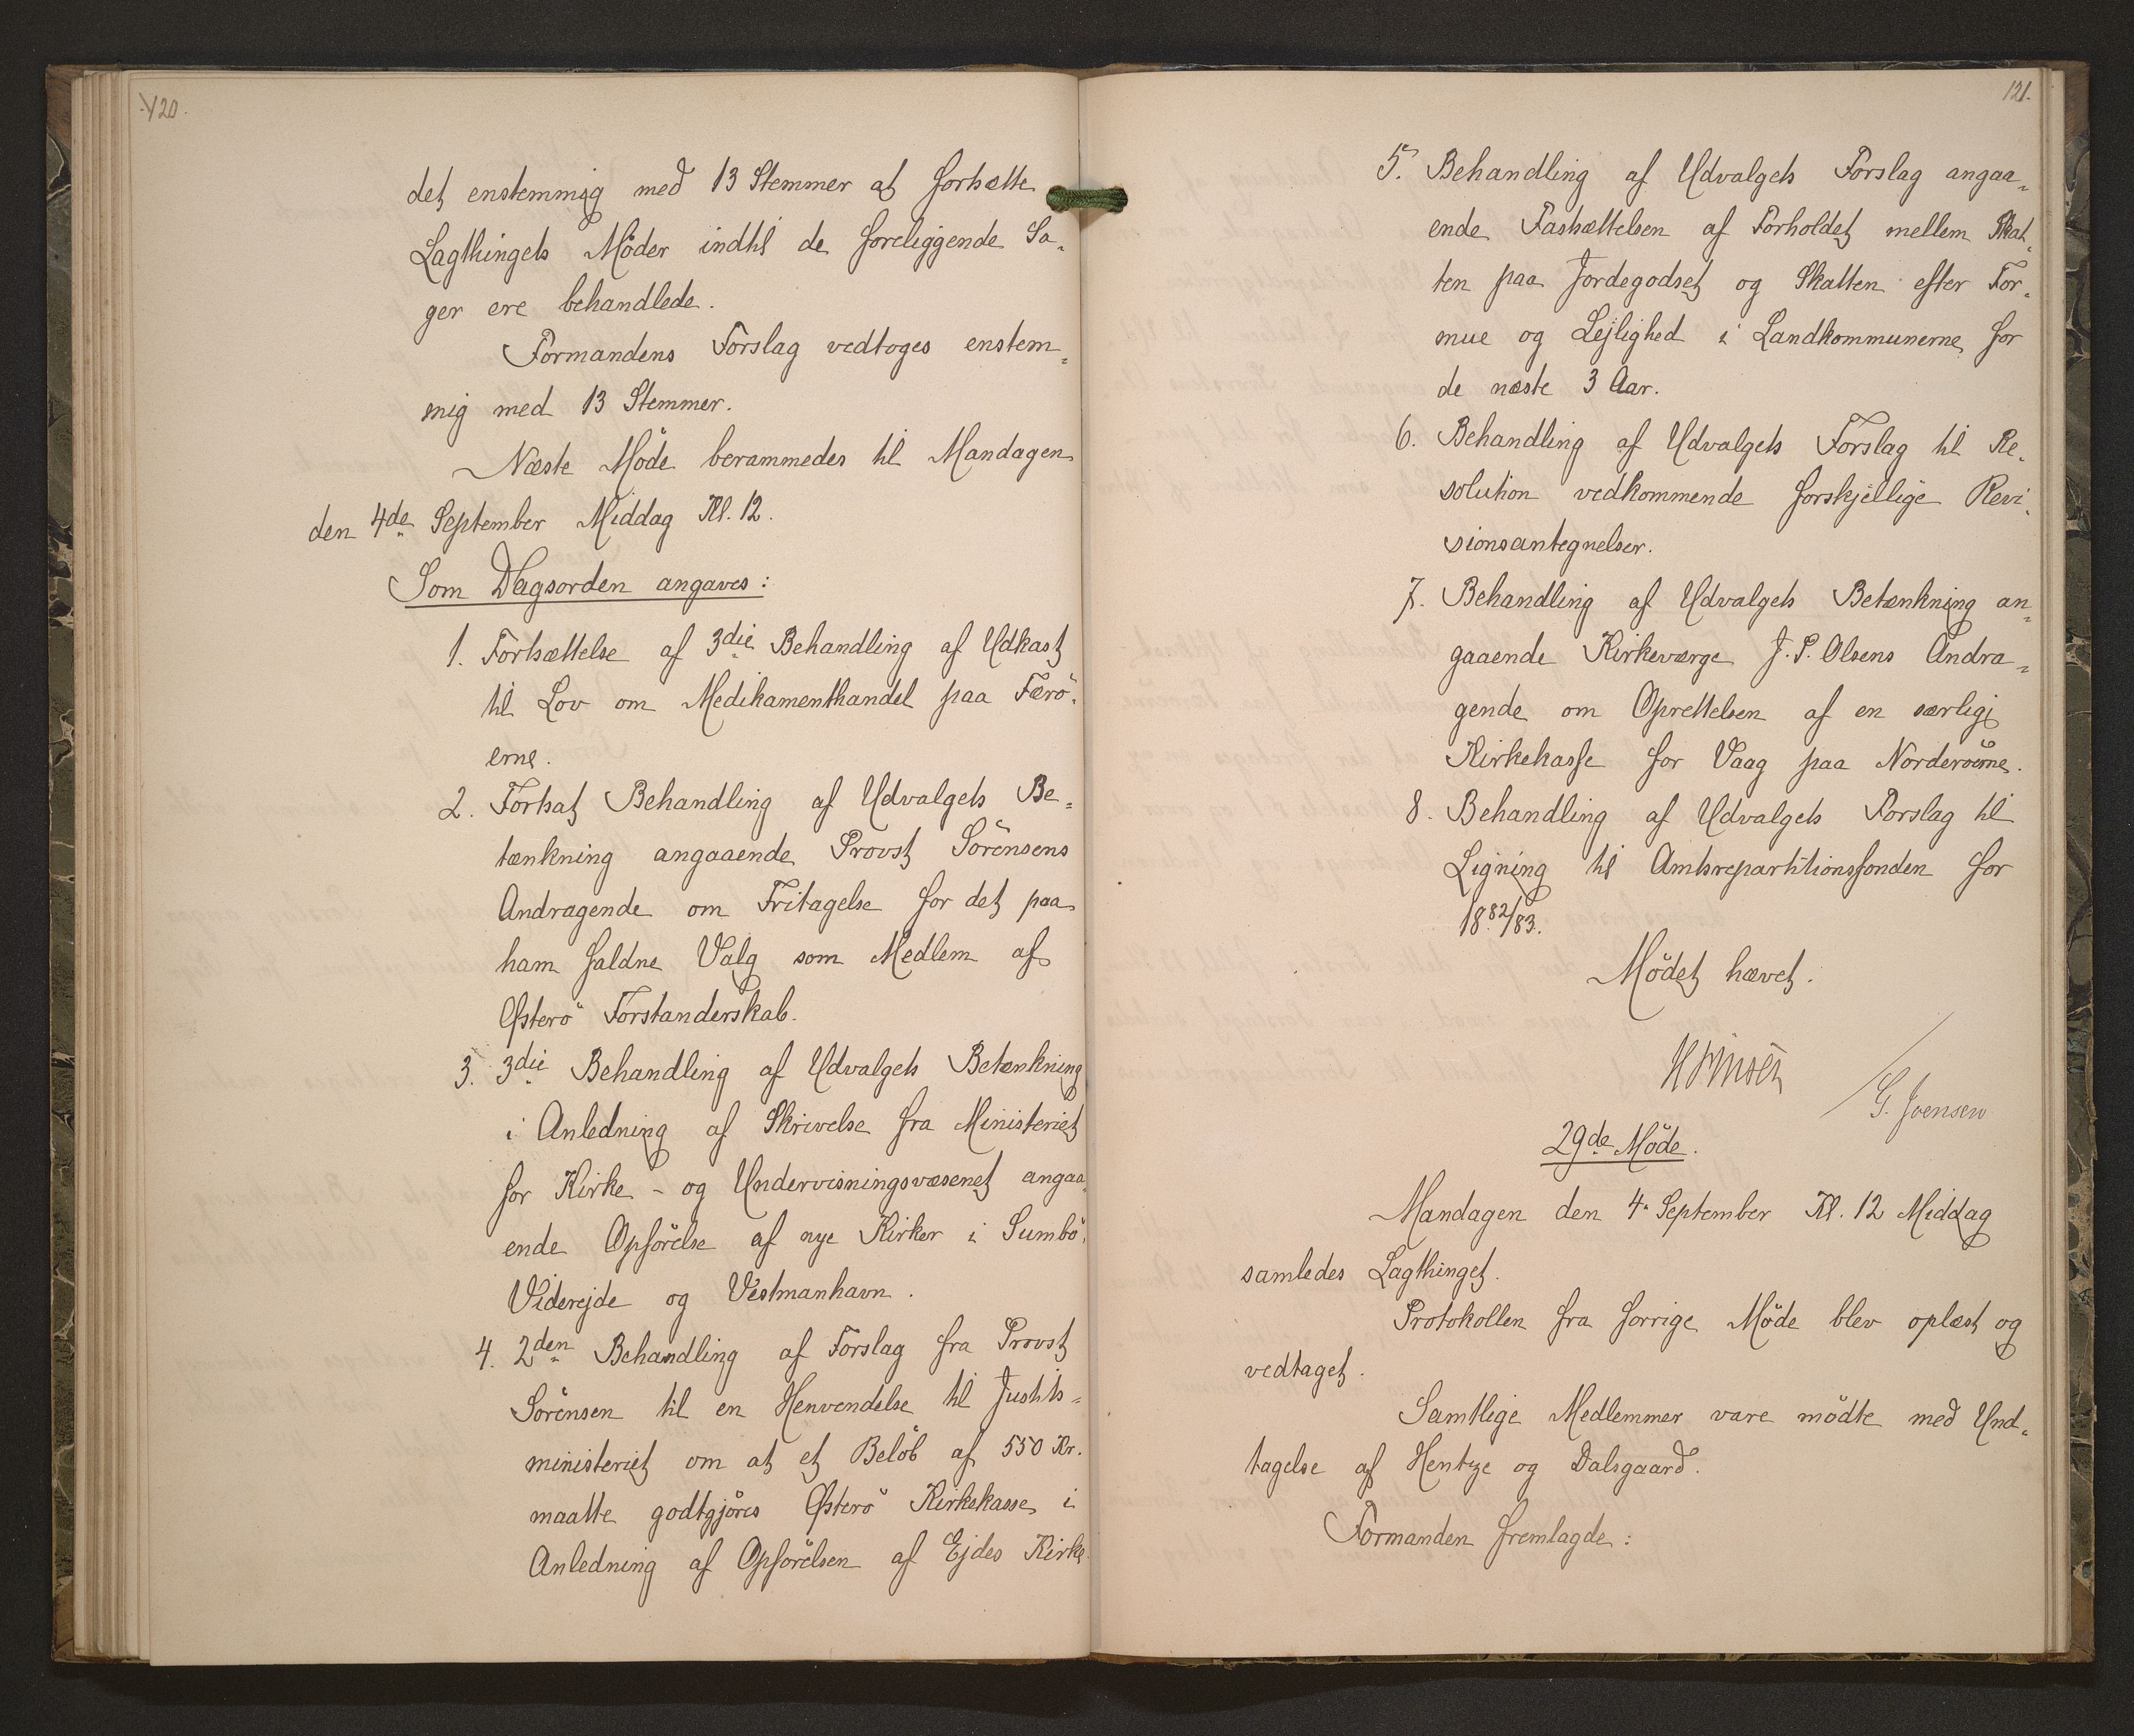 120.
det enstemmig med 13 Stemmer at fortsætte
Lagthingets Möder indtil de foreliggende Sa-
ger ere behandlede.
Formandens Forslag vedtoges enstem=
mig med 13 Stemmer.
Næste Möde berammedes til Mandagen
den 4de September Middag Kl. 12.
Som Dagsorden angaves:
1. Fortsættelse af 3die Behandling af Udkast
til Lov om Medikamenthandel paa Færö-
erne.
2. Fortsat Behandling af Udvalgets Be=
tænkning angaaende Provst Sörensens
Andragende om Fritagelse for det paa
ham faldne Valg som Medlem af
Østerö Forstanderskab.
3. 3die Behandling af Udvalgets Betænkning
i Anledning af Skrivelse fra Ministeriet
for Kirke- og Undervisningsvæsenet angaa=
ende Opförelse af nye Kirker i Sumbö,
Viderejde og Vestmanhavn.
4. 2den Behandling af Forslag fra Provst
Sörensen til en Henvendelse til Justits=
ministeriet om at et Belöb af 550 Kr.
maatte godtgjöres Østerö Kirkekasse i
Anledning af Opförelsen af Ejdes Kirke
121.
5. Behandling af Udvalgets Forslag angaa=
ende Fastsættelsen af Forholdet mellem Skat-
ten paa Jordegodset og Skatten efter For-
mue og Lejlighed i Landkommunerne for
de næste 3 Aar.
6. Behandling af Udvalgets Forslag til Re-
solution vedkommende forskjellige Revi-
sionsantegnelser.
7. Behandling af Udvalgets Betænkning an=
gaaende Kirkeværge J. P. Olsens Andra=
gende om Oprettelsen af en særlig
Kirkekasse for Vaag paa Norderöerne.
8. Behandling af Udvalgets Forslag til
Ligning til Amtsrepartitionsfonden for
1882/83.
Mödet hævet.
H Finsen
/ G. Joensen
29de Möde.
Mandagen den 4. September Kl. 12 Middag
samledes Lagthinget.
Protokollen fra forrige Möde blev oplæst og
vedtaget.
Samtlige Medlemmer vare mödte med Und=
tagelse af Hentze og Dalsgaard.
Formanden fremlagde: